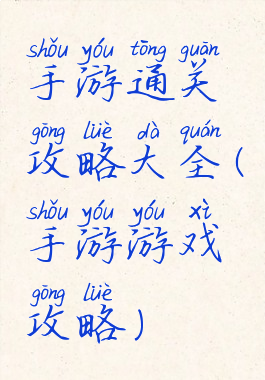 shǒu yóu tōng guān
手游通关
gōng lüè dà quán
攻略大全(
shǒu yóu yóu xì
手游游戏
gōng lüè
攻略)